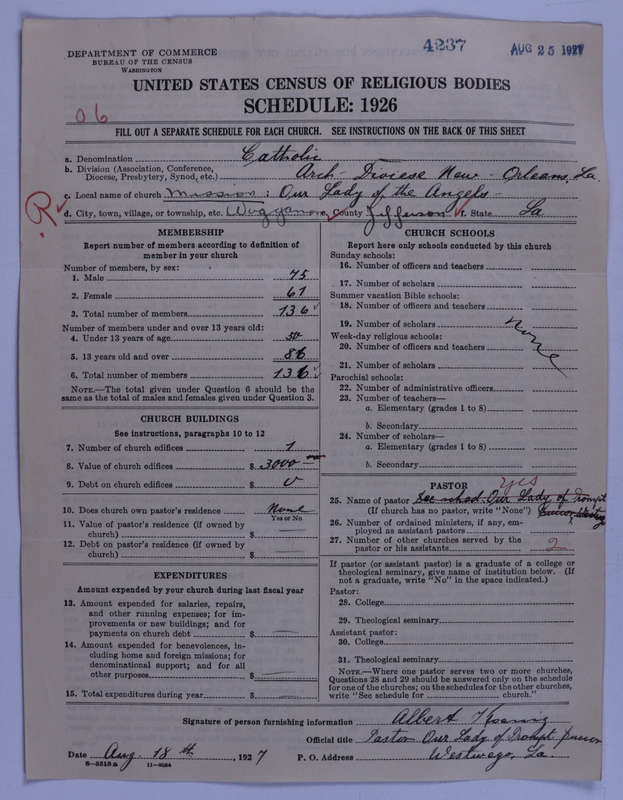 4237
AUG 25 1927
DEPARTMENT OF COMMERCE
BUREAU OF THE CENSUS
WASHINGTON
UNITED STATES CENSUS OF RELIGIOUS BODIES
SCHEDULE: 1926
06
FILL OUT A SEPARATE SCHEDULE FOR EACH CHURCH. SEE INSTRUCTIONS ON THE BACK OF THIS SHEET
a. Denomination Catholic
b. Division (Association, Conference, Diocese, Presbytery, Synod, etc.) Arch-Diocese New-Orleans, La.
c. Local name of church Mission: Our Lady of the Angels-
R
d. City, town, village, or township, etc. County Jefferson State La
MEMBERSHIP
Report number of members according to definition of
member in your church
Number of members, by sex:
1. Male 75
2. Female 61
3. Total number of members 136
Number of members under and over 13 years old:
4. Under 13 years of age 50
5. 13 years old and over 86
6. Total number of members 136
NOTE.—The total given under Question 6 should be the
same as the total of males and females given under Question 3.
CHURCH BUILDINGS
See instructions, paragraphs 10 to 12
7. Number of church edifices 1
8. Value of church edifices $ 3000
9. Debt on church edifices $ 0
10. Does church own pastor's residence None
Yes or No
11. Value of pastor's residence (if owned by
church) $
12. Debt on pastor's residence (if owned by
church) $
EXPENDITURES
Amount expended by your church during last fiscal year
13. Amount expended for salaries, repairs,
and other running expenses; for im-
provements or new buildings; and for
payments on church debt $
14. Amount expended for benevolences, in-
cluding home and foreign missions; for
denominational support; and for all
other purposes $
15. Total expenditures during year $
CHURCH SCHOOLS
Report here only schools conducted by this church
Sunday schools:
16. Number of officers and teachers
17. Number of scholars
Summer vacation Bible schools:
18. Number of officers and teachers
19. Number of scholars
None
Week-day religious schools:
20. Number of officers and teachers
21. Number of scholars
Parochial schools:
22. Number of administrative officers
23. Number of teachers—
a. Elementary (grades 1 to 8)
b. Secondary
24. Number of scholars—
a. Elementary (grades 1 to 8)
b. Secondary
PASTOR yes
25. Name of pastor See sched. Our Lady of Prompt
(If church has no pastor, write "None") Succor Westwego
26. Number of ordained ministers, if any, em-
ployed as assistant pastors
27. Number of other churches served by the
pastor or his assistants 2
If pastor (or assistant pastor) is a graduate of a college or
theological seminary, give name of institution below. (If
not a graduate, write "No" in the space indicated.)
Pastor:
28. College
29. Theological seminary
Assistant pastor:
30. College
31. Theological seminary
NOTE.—Where one pastor serves two or more churches,
Questions 28 and 29 should be answered only on the schedule
for one of the churches; on the schedules for the other churches,
write "See schedule for church."
Signature of person furnishing information Albert Koenig
Official title Pastor Our Lady of Prompt Succor
Date Aug. 18th, 1927 P. O. Address Westwego, La.
8-5518a 11-9084